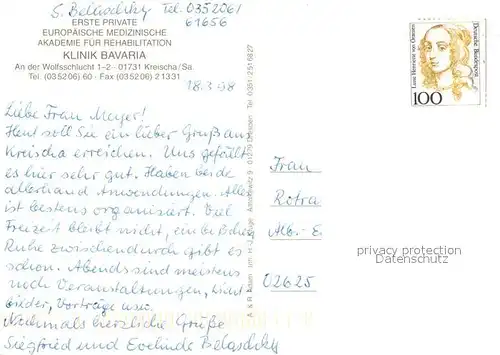 S. Belaschky Tel. 035206/
61656
ERSTE PRIVATE
EUROPÄISCHE MEDIZINISCHE
AKADEMIE FÜR REHABILITATION
KLINIK BAVARIA
An der Wolfsschlucht 1–2 · 01731 Kreischa/Sa.
Tel. (035206) 60 · Fax (035206) 21331
18.3.98
Liebe Frau Mayer!
Heut soll Sie ein lieber Gruß aus
Kreischa erreichen. Uns gefällt
es hier sehr gut. Haben beide
allerhand Anwendungen. Alles
ist bestens organisiert. Viel
Freizeit bleibt nicht, ein bißchen
Ruhe zwischendurch gibt es
schon. Abends sind meistens
noch Veranstaltungen, Licht
bilder, Vorträge usw.
Nochmals herzliche Grüße
Siegfried und Evelinde Belaschky
A. & R. Adam um H.-J. Kluge 01239 Dresden Tel. 0351/2516827
Luise Henriette von Oranien
Deutsche Bundespost
100
Frau
Rotra
Alb.-E.
02625
privacy protection
Datenschutz